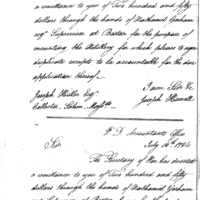 a remittance to you of Two hundred and fifty
dollars through the hands of Nathaniel Gorham
esqr Supervisor at Boston for the purpose of
mounting the Artillery for which please to sign
duplicate receipts to be accountable for the due
application thereof.
I am Sir &c
Joseph Hiller Esqr
Joseph Howell
Collector, Salem, Massts
W. D. Accountants Office
July 16th 1794
Sir
The Secretary of War has directed
a remittance to you of Two hundred and fifty
dollars through the hands of Nathaniel Gorham